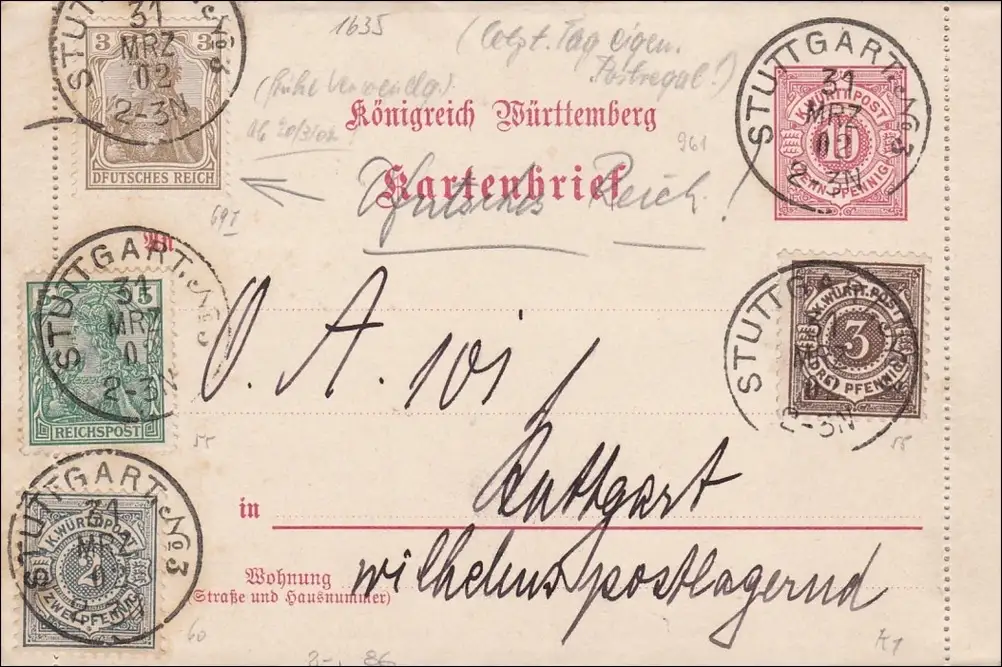 STUTTGART. No 3
31
MRZ
02
2-3N
3 3
DFUTSCHES REICH
1635
(letzt. Tag eigen.
Postregal!)
(frühe Verwendg).
Ab 20/3/02
Königreich Württemberg
961
Kartenbrief
Dfutsches Reich!
69 I
STUTTGART. No 3
31
MRZ
02
2-3N
K. WÜRTT. POST
10
ZEHN PFENNIG
An
STUTTGART. No 3
31
MRZ
0
2-3N
5
REICHSPOST
55
O. A. 101
STUTTGA
2-3N
K. WÜRTT. POST
3
DREI PFENNIG
55
STUTTGART. No 3
31
MRZ
0
K. WÜRTT. POST
2
ZWEI PFENNIG
60
Stuttgart
in
wilhelmspostlagernd
Wohnung
(Straße und Hausnummer)
K1
2-. 86